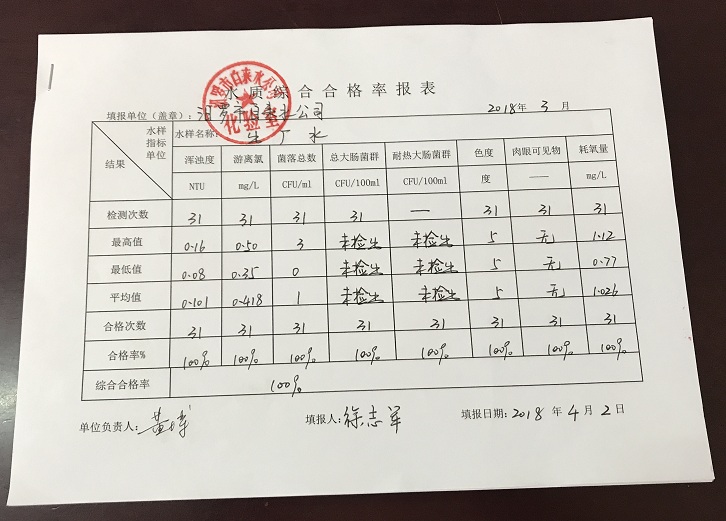 水质综合合格率报表
填报单位（盖章）：汨罗市自来水公司 2018年 3 月
化验室
水样 指标 单位 结果 水样名称：生厂水
浑浊度 游离氯 菌落总数 总大肠菌群 耐热大肠菌群 色度 肉眼可见物 耗氧量
NTU mg/L CFU/ml CFU/100ml CFU/100ml 度 —— mg/L
检测次数 31 31 31 31 — 31 31 31
最高值 0.16 0.50 3 未检出 未检出 5 无 1.12
最低值 0.08 0.35 0 未检出 未检出 5 无 0.77
平均值 0.101 0.418 1 未检出 未检出 5 无 1.026
合格次数 31 31 31 31 31 31 31 31
合格率% 100% 100% 100% 100% 100% 100% 100% 100%
综合合格率 100%
单位负责人： 填报人：徐志军 填报日期：2018 年 4 月 2 日